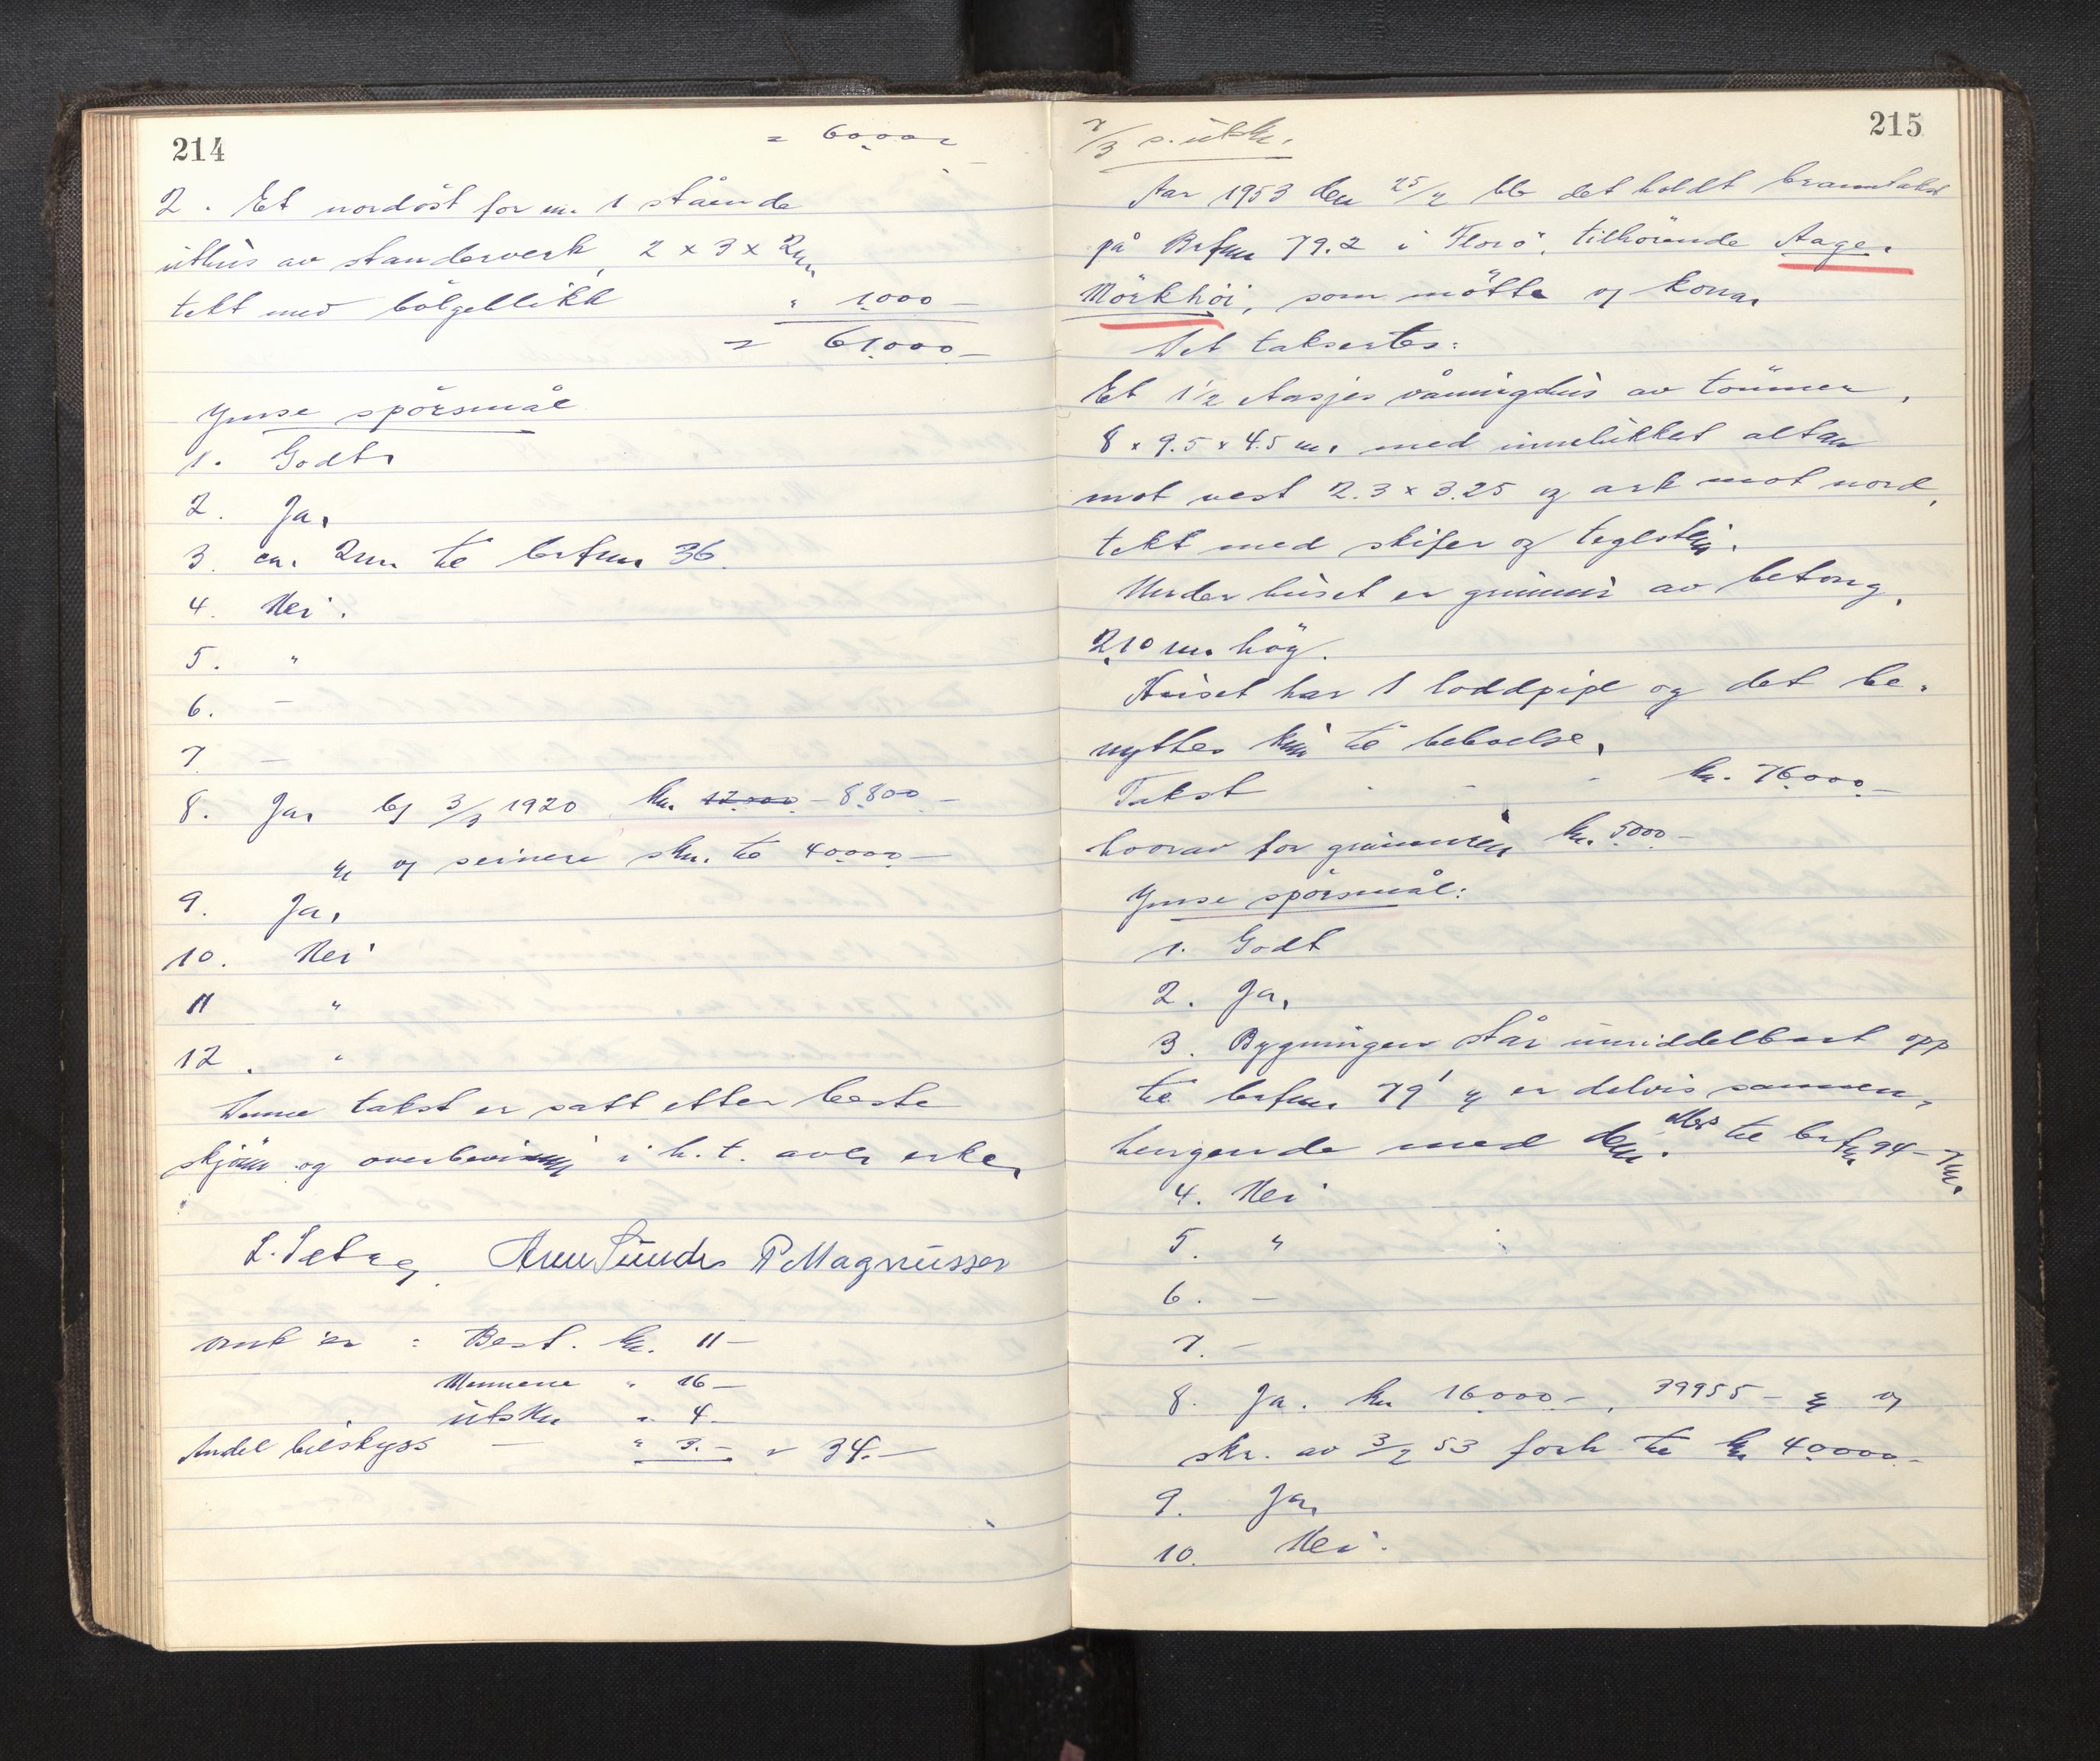 214
= 60.000
2. Et nordöst for nr. 1 stående
uthus av standerverk, 2 x 3 x 2 m.
tekt med bölgeblikk " 1.000 –
= 61.000 –
Ymse spörsmål
1. Godt.
2. Ja.
3. ca. 2 m. til brfnr 36.
4. Nei.
5. "
6. –
7. –
8. Ja. bf 3/3 1920 kr. 12.000 – 8.800 –
og seinere skr. til 40.000 –
9. Ja.
10. Nei
11 "
12. "
Denne takst er satt etter beste
skjönn og overbevisning i h.t. avlagt
S. Arne Sunde P. Magnussen
Omk er : Best. kr. 11 –
Mennene " 16 –
Utskr " 4 –
Andel bilskyss – " 3. – = 34. –
215
7/3 s. utskr.
Aar 1953 den 25/2 ble det holdt branntakst
på Brfnr 79.2 i Florö, tilhörende Aage
Mörkhöi, som mötte og kona.
Det taksertes:
Et 1 1/2 etasjes våningshus av tömmer,
8 x 9.5 x 4.5 m. med innelukket altan
mot vest 2.3 x 3.25 og ark mot nord,
tekt med skifer og teglstein.
Under huset er grunnmur av betong,
2,10 m. hög.
Huset har 1 loddpipe og det be-
nyttes kun til beboelse.
Takst - - - kr. 76.000 –
hvorav for grunnmuren kr. 5000 –
Ymse spörsmål:
1. Godt
2. Ja.
3. Bygningen står umiddelbart opp
til brfnr. 79.1 og er delvis sammen-
hengende med den. Ellers til brfnr 94 – 7 m.
4. Nei
5. "
6. –
7. –
8. Ja. kr 16.000 –, 39955 – og
skr. av 3/2 53 forh. til kr 40.000 –
9. Ja.
10. Nei.